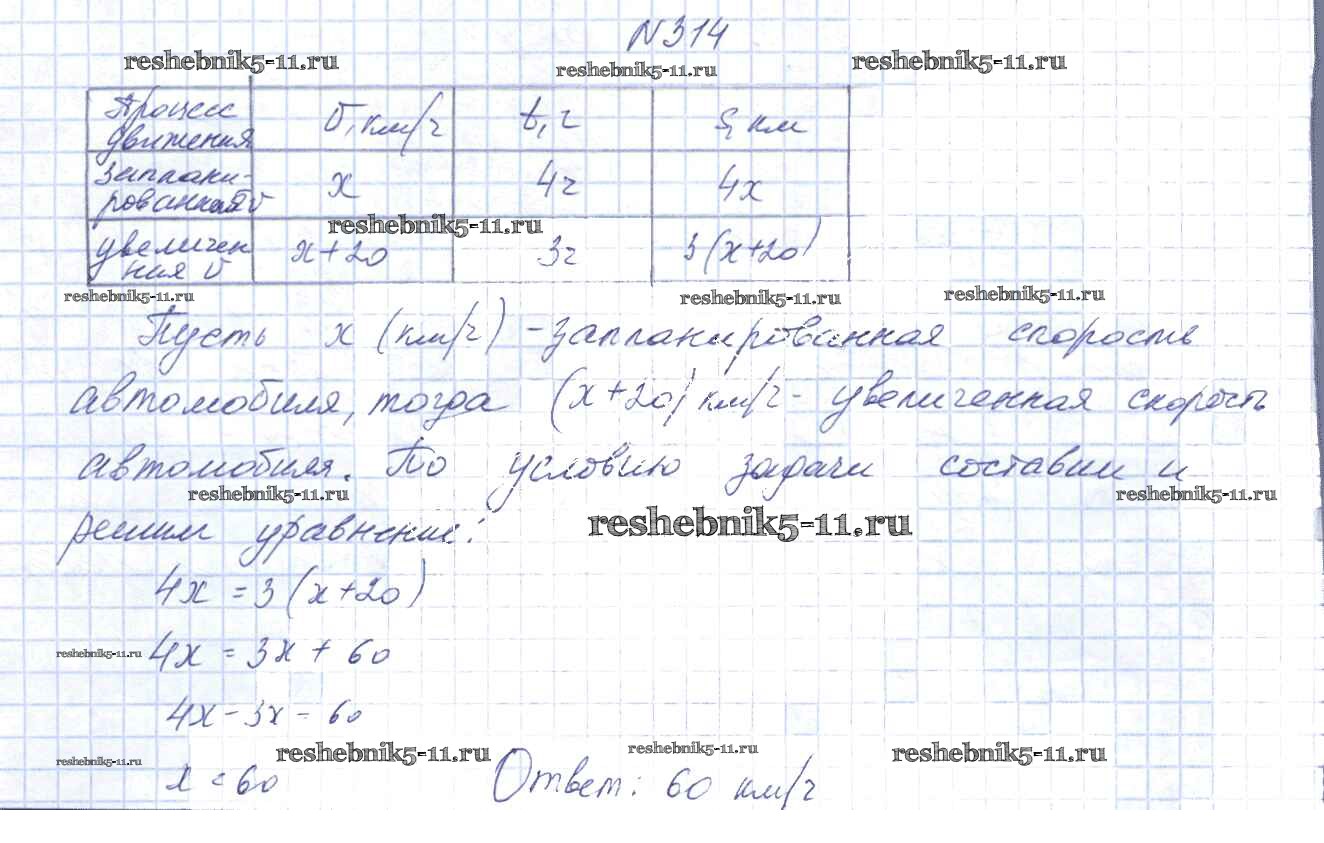 N314
reshebnik5-11.ru reshebnik5-11.ru reshebnik5-11.ru
Процесс движения v, км/ч t, ч S, км
запланированная v x 4ч 4x
reshebnik5-11.ru
увеличенная v x+20 3ч 3(x+20)
reshebnik5-11.ru reshebnik5-11.ru reshebnik5-11.ru
Пусть x (км/ч) - запланированная скорость
автомобиля, тогда (x+20) км/ч - увеличенная скорость
автомобиля. По условию задачи составим и
reshebnik5-11.ru reshebnik5-11.ru
решим уравнение:
reshebnik5-11.ru
4x = 3(x+20)
reshebnik5-11.ru 4x = 3x + 60
4x - 3x = 60
reshebnik5-11.ru reshebnik5-11.ru reshebnik5-11.ru reshebnik5-11.ru
x = 60 Ответ: 60 км/ч